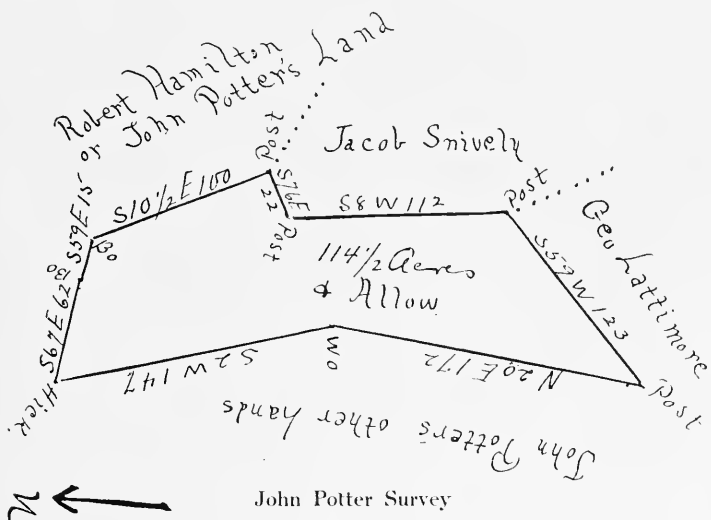 Robert Hamilton
or John Potter's Land
Post
Jacob Snively
Post
Geo Lattimore
S59E15
S10½E100
S76E
22
Post
S8W112
S59W123
Bo
Bo
S67E62
114½ Acres
& Allow
Hick.
S2W147
Wo
N20E172
Post
John Potter's other hands
N
John Potter Survey